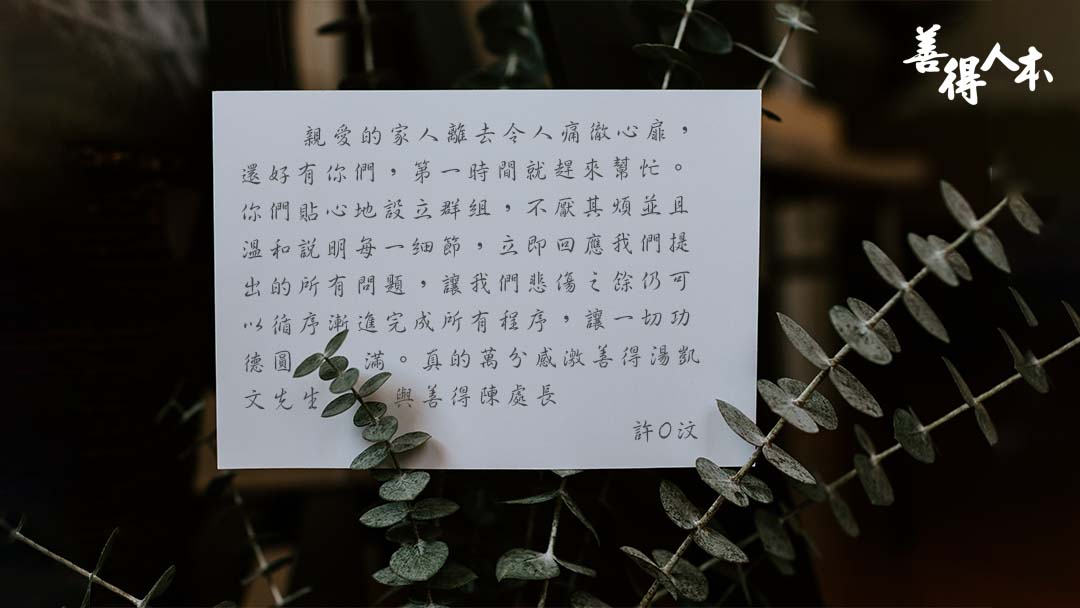 善得人本
親愛的家人離去令人痛徹心扉，
還好有你們，第一時間就趕來幫忙。
你們貼心地設立群組，不厭其煩並且
溫和說明每一細節，立即回應我們提
出的所有問題，讓我們悲傷之餘仍可
以循序漸進完成所有程序，讓一切功
德圓滿。真的萬分感激善得湯凱
文先生與善得陳處長
許O汶